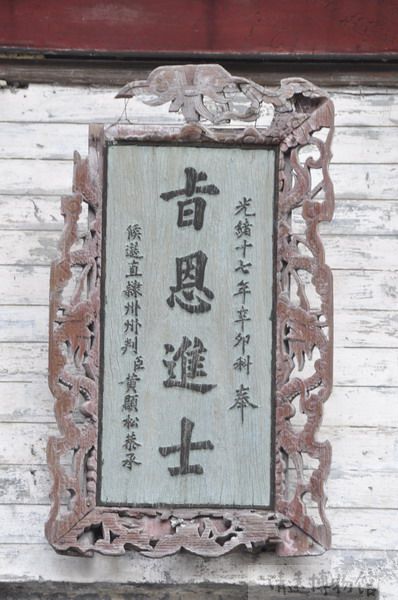 光緒十七年辛卯科奉
旨恩進士
候選直隸州州判臣黃顯松恭承